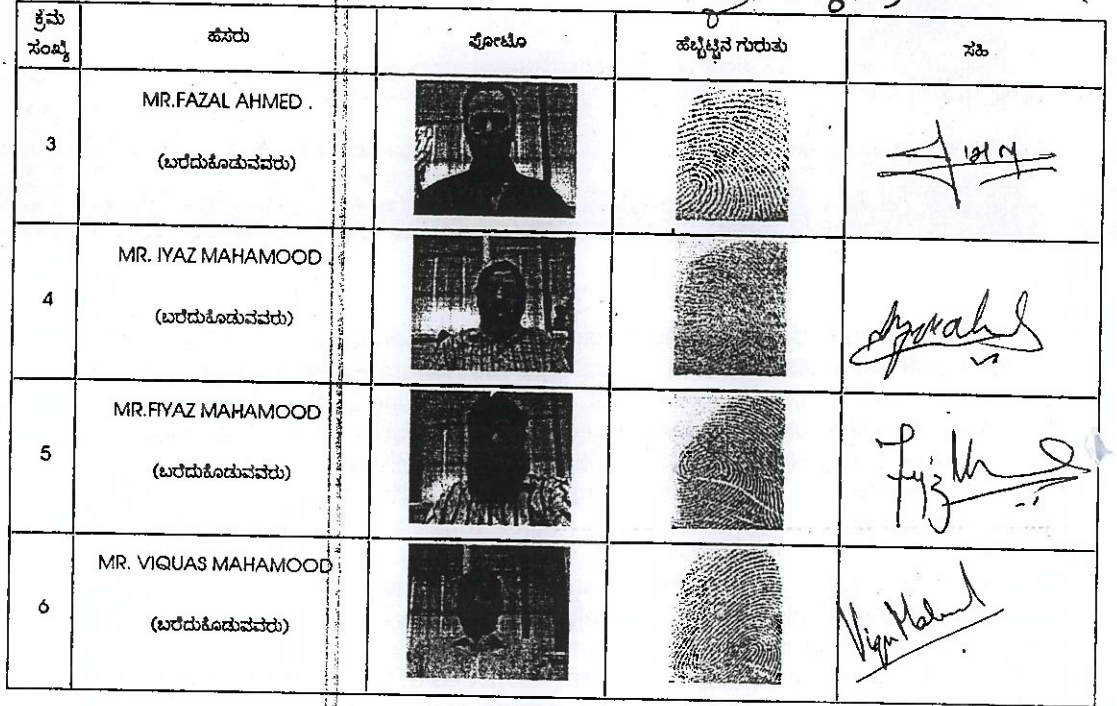 ಕ್ರಮ ಸಂಖ್ಯೆ ಹೆಸರು ಫೋಟೊ ಹೆಬ್ಬೆಟ್ಟಿನ ಗುರುತು ಸಹಿ
3 MR.FAZAL AHMED .
(ಬರೆದುಕೊಡುವವರು)
4 MR. IYAZ MAHAMOOD .
(ಬರೆದುಕೊಡುವವರು)
5 MR.FIYAZ MAHAMOOD
(ಬರೆದುಕೊಡುವವರು)
6 MR. VIQUAS MAHAMOOD
(ಬರೆದುಕೊಡುವವರು)